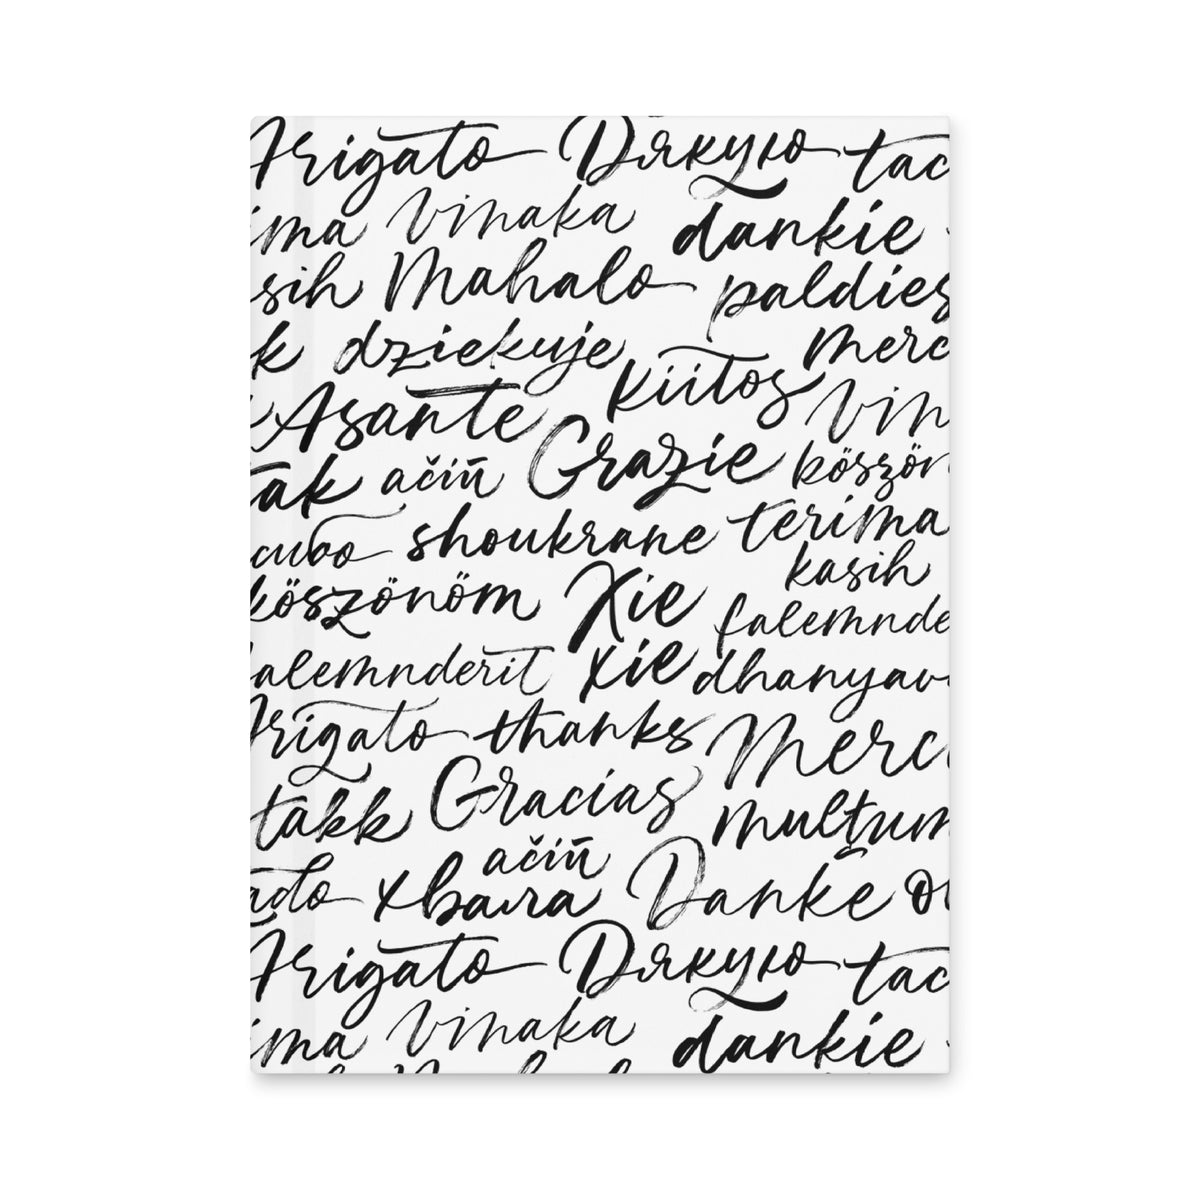 Arigato Дякую tac
ima vinaka dankie
sih Mahalo paldies
k dziekuje kiitos merc
Asante Grazie vin
tak ačiū köszön
сиво shoukrane terima
kasih
köszönöm Xie falemnde
alemnderit xie dhanyav
Arigato thanks Merc
takk Gracias mulţum
ačiū
ado хвала Danke
Arigato Дякую tac
ima vinaka dankie